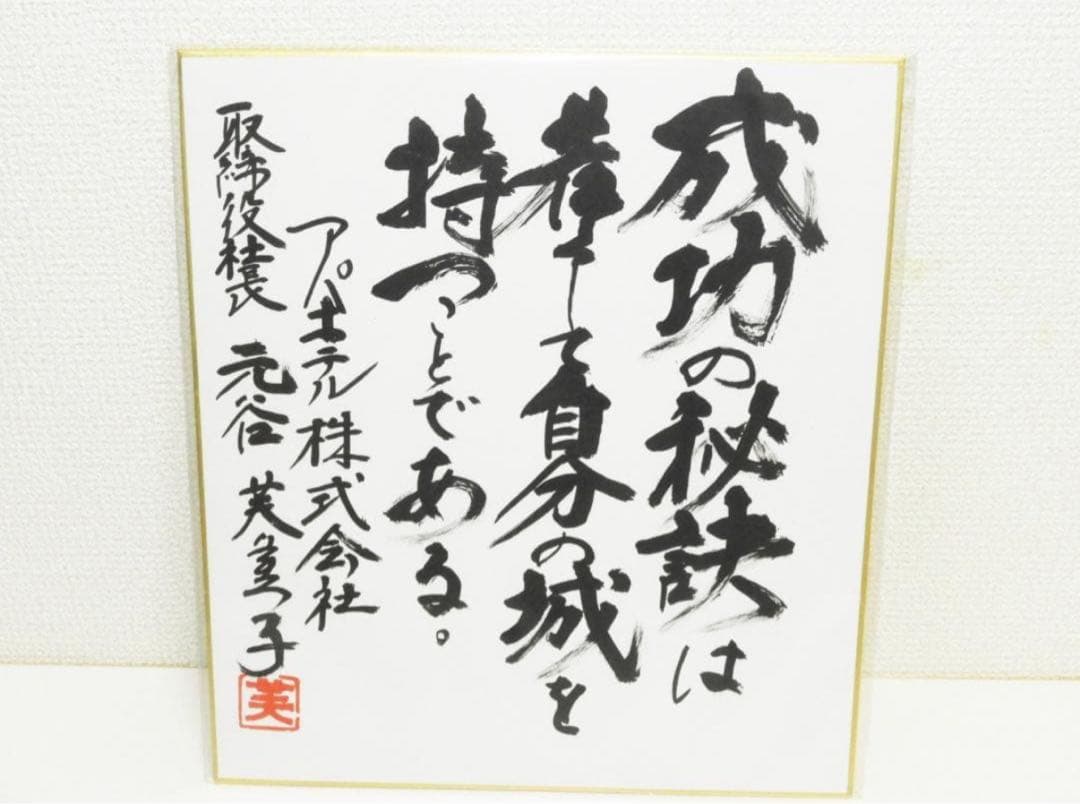 成功の秘訣は
若くして自分の城を
持つことである。
アパホテル株式会社
取締役社長 元谷 芙美子
芙